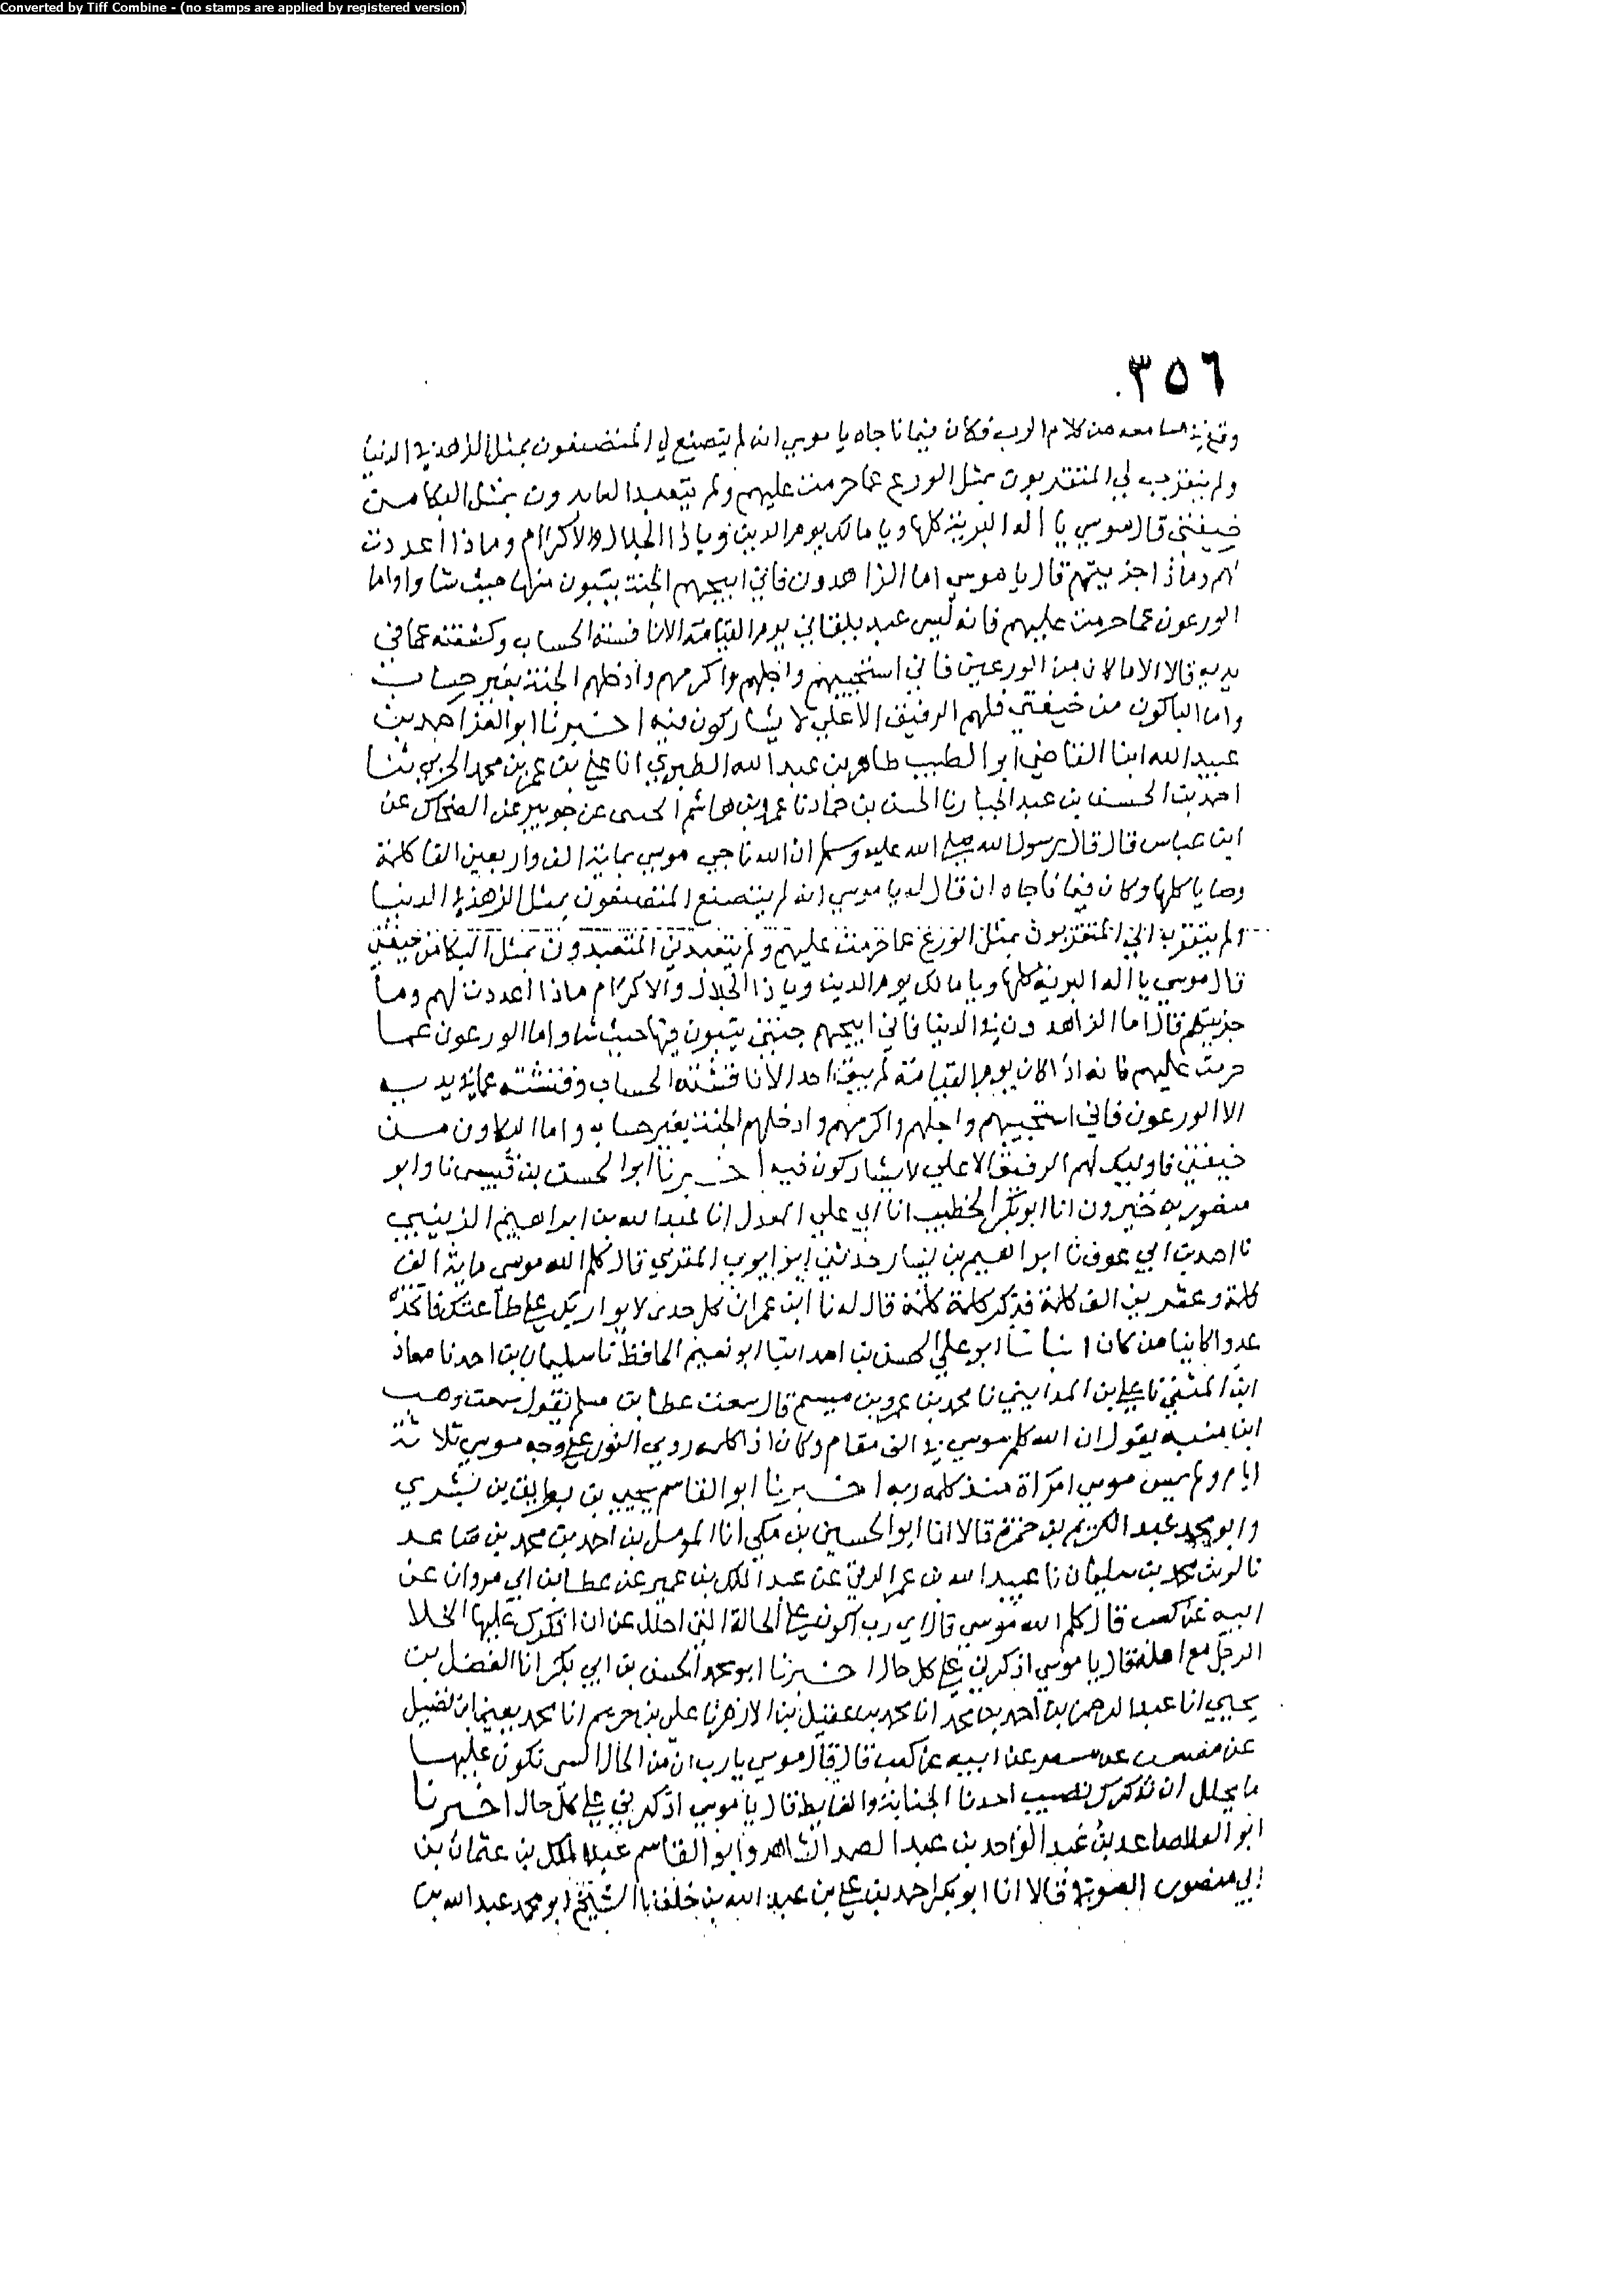 Converted by Tiff Combine - (no stamps are applied by registered version)
٣٥٦
وقع في مسامعه من كلام الرب فكان فيما ناجاه يا موسي انه لم يتصنع لي المتصنعون بمثل الزهد في الدنيا
ولم يتقرب لي المتقربون بمثل الورع عما حرمت عليهم ولم يتعبد العابدون بمثل البكا من
خيفتي قال موسي يا اله البرية كلها ويا مالك يوم الدين ويا ذا الجلال والاكرام وماذا اعددت
لهم وماذا جزيتهم قال يا موسي اما الزاهدون فاني ابيحهم الجنة يتبون منها حيث شاوا واما
الورعون عما حرمت عليهم فانه ليس عبد يلقاني يوم القيامة الا ناقشته الحساب وكشفته عما في
يديه قال الا ما كان من الورعين فاني استحييهم واجلهم واكرمهم وادخلهم الجنة بغير حساب
واما الباكون من خيفتي فلهم الرفيق الاعلي لا يشاركون فيه اخبرنا ابو العز احمد بن
عبيد الله ابنا القاضي ابو الطيب طاهر بن عبد الله الطبري انا علي بن عمر بن محمد الحربي ثنا
احمد بن الحسن بن عبد الجبار نا الحسن بن حماد نا عمرو بن هاشم الحسى عن جويبر عن الضحاك عن
ابن عباس قال قال رسول الله صلي الله عليه وسلم ان الله ناجي موسي بماية الف واربعين الف كلمة
وصايا كلها وكان فيما ناجاه ان قال له يا موسي انه لم يتصنع المتصنعون بمثل الزهد في الدنيا
ولم يتقرب الي المتقربون بمثل الورع عما حرمت عليهم ولم يتعبدني المتعبدون بمثل البكا من خيفتي
قال موسي يا اله البرية كلها ويا مالك يوم الدين ويا ذا الجلال والاكرام ماذا اعددت لهم وما
جزيتهم قال اما الزاهدون في الدنيا فاني ابيحهم جنتي يتبون فيها حيث شاوا واما الورعون عما
حرمت عليهم فانه اذا كان يوم القيامة لم يبق احد الا ناقشته الحساب وفتشته عما في يديه
الا الورعون فاني استحييهم واجلهم واكرمهم وادخلهم الجنة بغير حساب واما الباكون من
خيفتي فاوليك لهم الرفيق الاعلي لا يشاركون فيه اخبرنا ابو الحسن بن قبيس نا وابو
منصور بن خيرون انا ابو بكر الخطيب انا ابي علي المعدل انا عبد الله بن ابراهيم الزينبي
نا احمد بن ابي عوف نا ابراهيم بن بشار حدثني ابو ايوب المقري قال كلم الله موسي ماية الف
كلمة وعشرين الف كلمة فذكر كلمة كلمة قال له نا ابن عمران كل خدن لا يواريك علي طاعتك فاتخذه
عدوا كاينا من كان انبانا ابو علي الحسن بن احمد انبا ابو نعيم الحافظ نا سليمان بن احمد نا معاذ
ابن المثني نا علي بن المديني نا محمد بن عمرو بن ميسم قال سمعت عطا بن مسلم يقول سمعت وهب
ابن منبه يقول ان الله كلم موسي في الف مقام وكان اذا كلمه روي النور علي وجه موسي ثلاثة
ايام ولم يمس موسي امراة منذ كلمه ربه اخبرنا ابو القاسم يحيي بن بطريق بن بشري
وابو محمد عبد الكريم بن حمزة قالا انا ابو الحسين بن مكي انا المومل بن احمد بن محمد بن صاعد
نا لوين محمد بن سليمان نا عبيد الله بن عمر الرقي عن عبد الملك بن عمير عن عطا بن ابي مروان عن
ابيه عن كعب قال كلم الله موسي قال اي رب اكون علي الحالة التي اجلك عن ان اذكرك عليها الخلا
الرجل مع اهله فقال يا موسي اذكرني علي كل حال اخبرنا ابو محمد الحسن بن ابي بكر انا الفضل بن
يحيي انا عبد الرحمن بن احمد بن محمد انا محمد بن عقيل بن الازهر نا علي بن خريم انا محمد يعني ابن فضيل
عن عن مسعر عن ابيه عن كعب قال قال موسي يا رب ان من الحال التي نكون عليها
ما يجلل ان نذكرك نصيب احدنا الجنابة والغايط قال يا موسي اذكرني علي كل حال اخبرنا
ابو العلا صاعد بن عبد الواحد بن عبد الصمد الشاهد وابو القاسم عبد الملك بن عثمان بن
ابي منصور قالا انا ابو بكر احمد بن علي بن عبد الله بن خلف نا الشيخ ابو محمد عبد الله بن